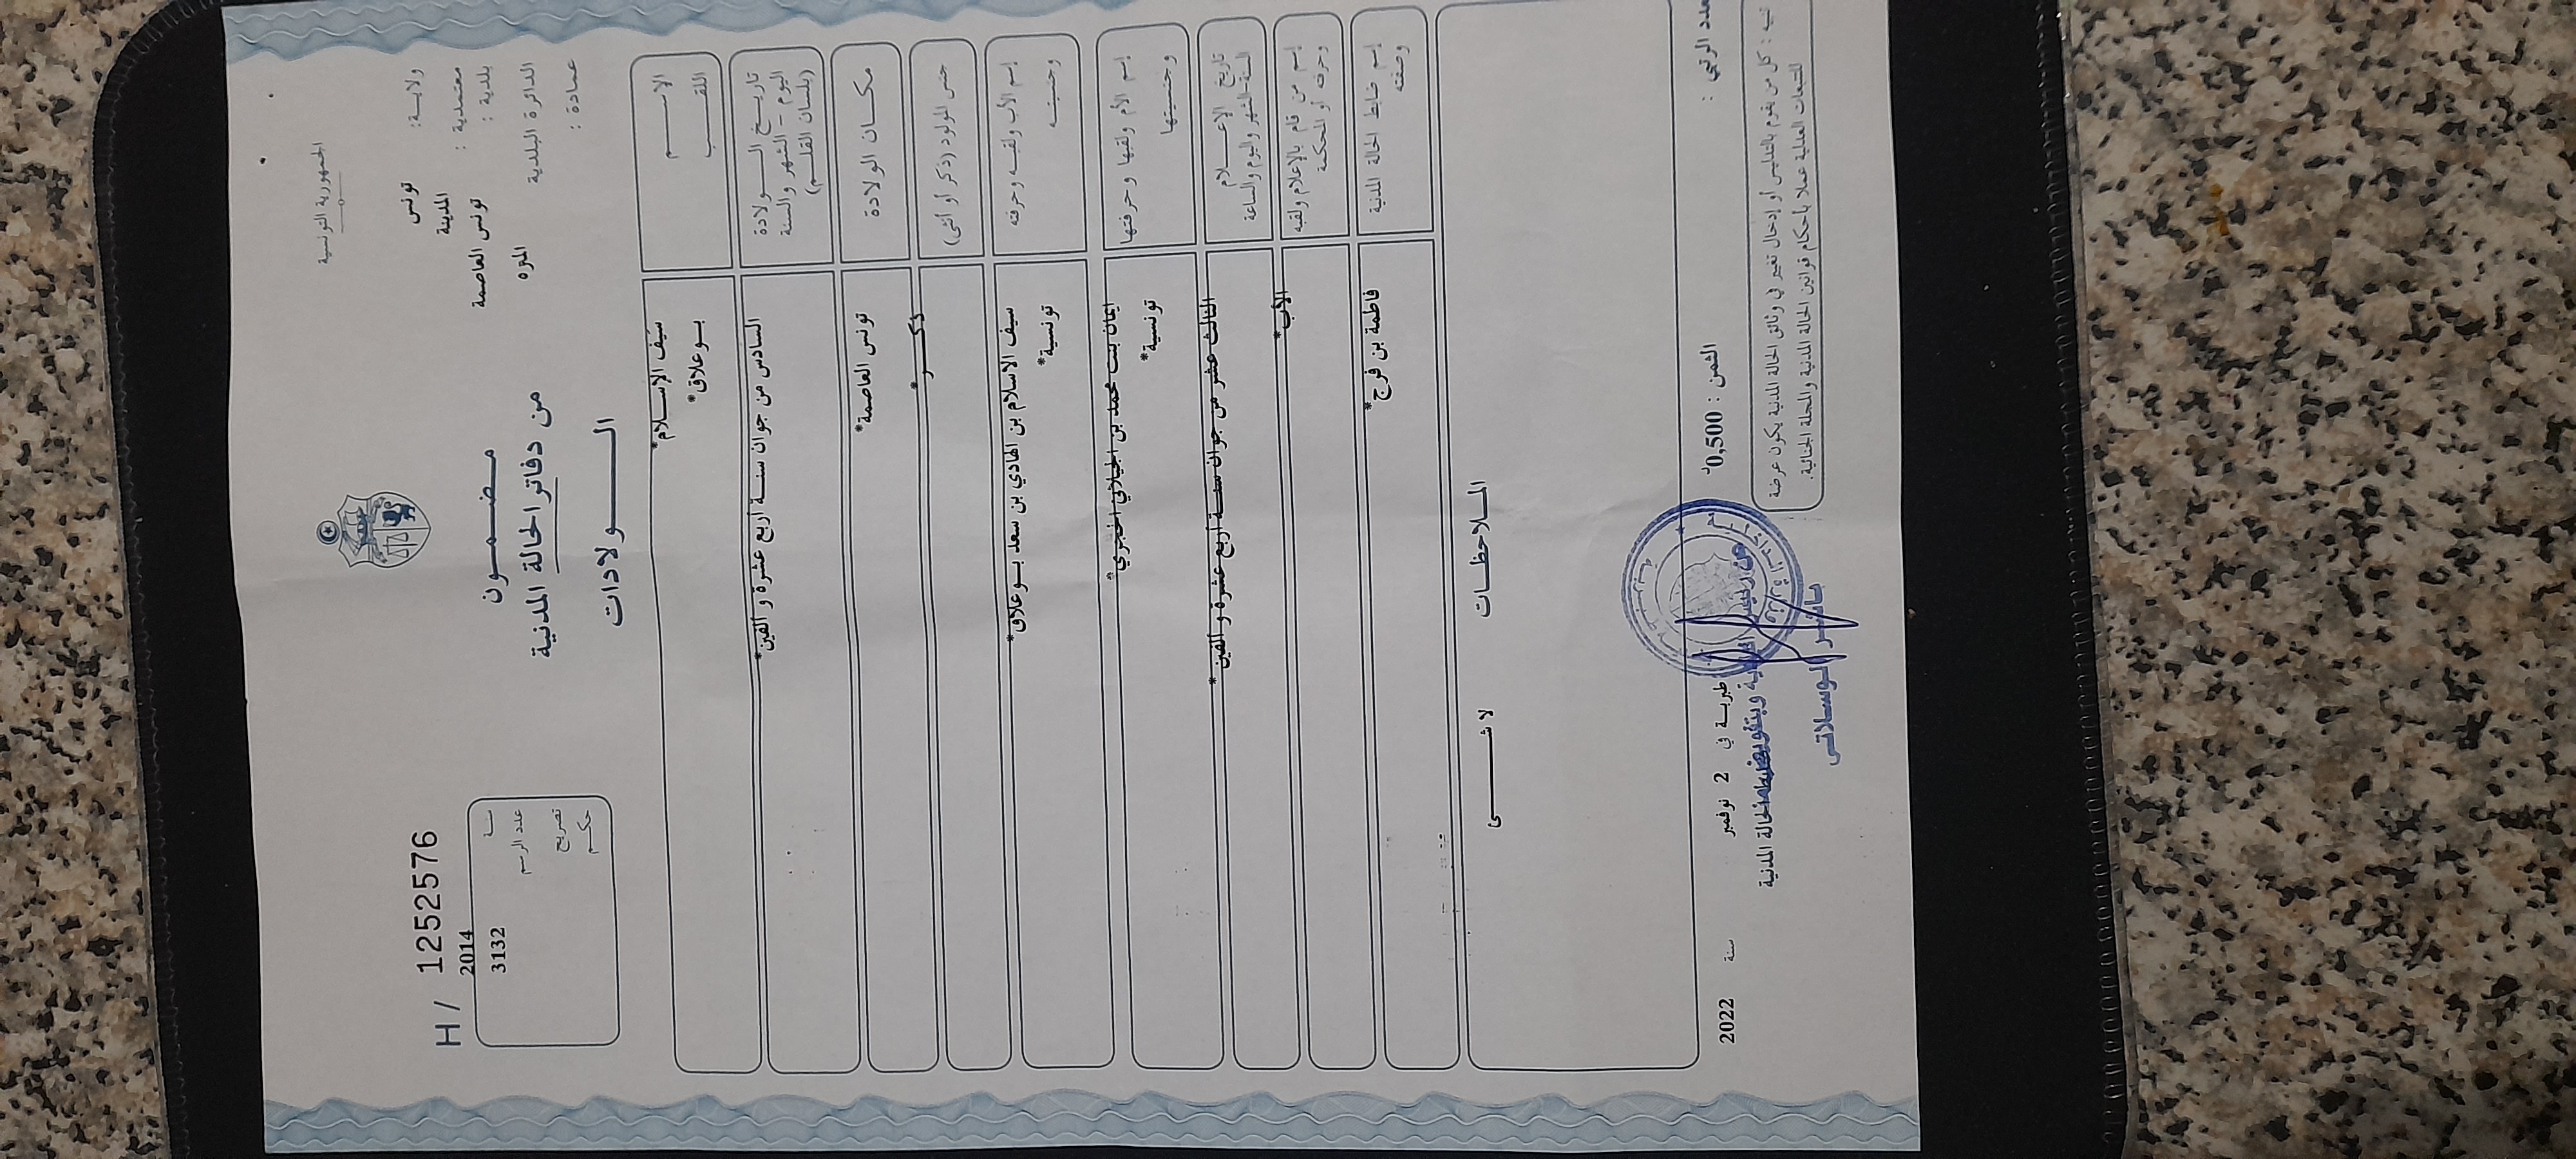 الجمهورية التونسية
ولاية: تونس
معتمدية : المدينة
بلدية : تونس العاصمة
الدائرة البلدية المنزه
عمادة :
H / 12522576
سنة 2014
عدد الرسم 3132
تصريح
حكم
مضمون
من دفاتر الحالة المدنية
الولادات
الاسم سيف الإسلام*
اللقب بوعلاق*
تاريخ الولادة
اليوم - الشهر والسنة
(بلسان القلم)
السادس من جوان سنة اربع عشرة و الفين*
مكان الولادة تونس العاصمة*
جنس المولود (ذكر أو أنثى) ذكر*
إسم الأب ولقبه وحرفته سيف الاسلام بن الهادي بن سعد بوعلاق*
وجنسيته تونسية*
إسم الأم ولقبها وحرفتها ايمان بنت محمد بن الجيلاني
وجنسيتها تونسية*
تاريخ الإعلام
السنة الشهر واليوم والساعة
الثالث عشر من جوان سنة اربع عشرة و الفين*
إسم من قام بالإعلام ولقبه
وحرفته أو المحكمة
الأب*
إسم ضابط الحالة المدنية
وصفته
فاطمة بن فرج*
الملاحظات
لا شيء
عدد الرقمي :
الثمن : 0,500د
طبربة في 2 نوفمبر سنة 2022
عن رئيس البلدية وبتفويض ضابط الحالة المدنية
الوسلاتي
تنبيه : كل من يقوم بالتدليس أو إدخال تغيير في وثائق الحالة المدنية يكون عرضة
للتتبعات العدلية عملا بأحكام قوانين الحالة المدنية والمجلة الجنائية.